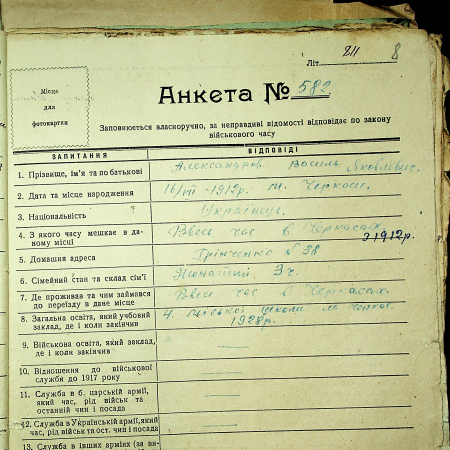 Літ. 211 8
Місце
для
фотокартки
Анкета № 582
Заповнюється власноручно, за неправдиві відомості відповідає по закону
військового часу
ЗАПИТАННЯ ВІДПОВІДІ
1. Прізвище, ім'я та по батькові Александров Василь Яковлевич.
2. Дата та місце народження 16/VII -1912р. м. Черкаси.
3. Національність Українець.
4. З якого часу мешкає в даному місці Ввесь час в Черкасах
з 1912р.
5. Домашня адреса Грінченко N 38
6. Сімейний стан та склад сім'ї Жонатий 3 ч.
7. Де проживав та чим займався
до переїзду в дане місце Ввесь час в Черкасах.
8. Загальна освіта, який учбовий
заклад, де і коли закінчив 4 школи м. Черкас
1928р.
9. Військова освіта, який заклад,
де і коли закінчив
10. Відношення до військової
служби до 1917 року
11. Служба в б. царській армії,
який час, рід військ та
останній чин і посада
12. Служба в Українській армії, який
час, рід військ та ост. чин і посада
13. Служба в інших арміях (за ви-